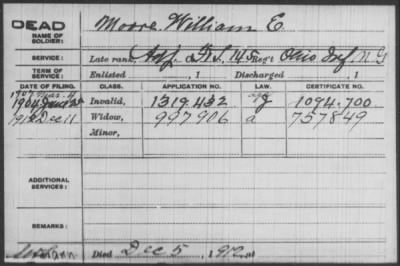 DEAD
NAME OF SOLDIER: Moore, William E.
SERVICE: Late rank, Adj. F&S, 145 Reg't Ohio Inf. N.G.
TERM OF SERVICE: Enlisted , 1 Discharged , 1
DATE OF FILING. CLASS. APPLICATION NO. LAW. CERTIFICATE NO.
1907 Mar. 11
1904 Invalid, 1319.432 J 1094.700
1912 Dec 11 Widow, 997906 a 757849
Minor,
ADDITIONAL SERVICES:
REMARKS:
Died Dec 5, 1912, at